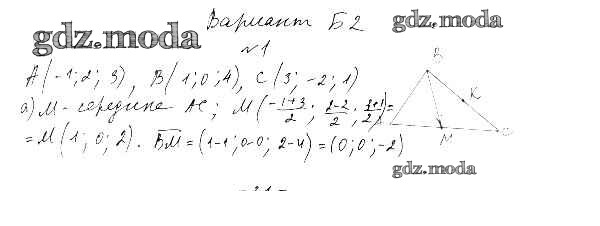 Вариант Б2
gdz.moda
gdz.moda
№1
A(-1; 2; 3), B(1; 0; 4), C(3; -2; 1)
а) M - середина AC; M(-1+3/2; 2-2/2; 3+1/2)=
= M(1; 0; 2). BM = (1-1; 0-0; 2-4) = (0; 0; -2)
B
K
M
C
gdz.moda